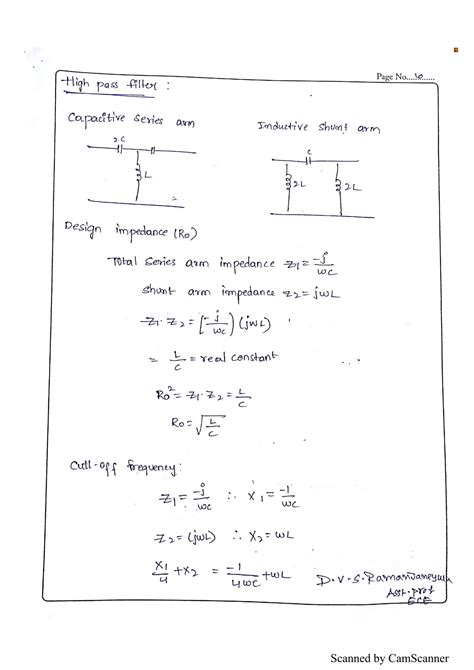 Page No....6......
High pass filter :
Capacitive series arm
Inductive shunt arm
2C
L
C
2L
2L
Design impedance (Ro)
Total series arm impedance z1 = -j/ωc
shunt arm impedance z2 = jωL
z1. z2 = [-j/ωc] (jωL)
= L/C = real constant
Ro² = z1. z2 = L/C
Ro = √L/C
Cutt-off frequency:
z1 = -j/ωc ∴ x1 = -1/ωc
z2 = (jωL) ∴ x2 = ωL
x1/4 + x2 = -1/4ωc + ωL
D.V.S. Ramanjaneyulu
Asst. prof
ECE
Scanned by CamScanner